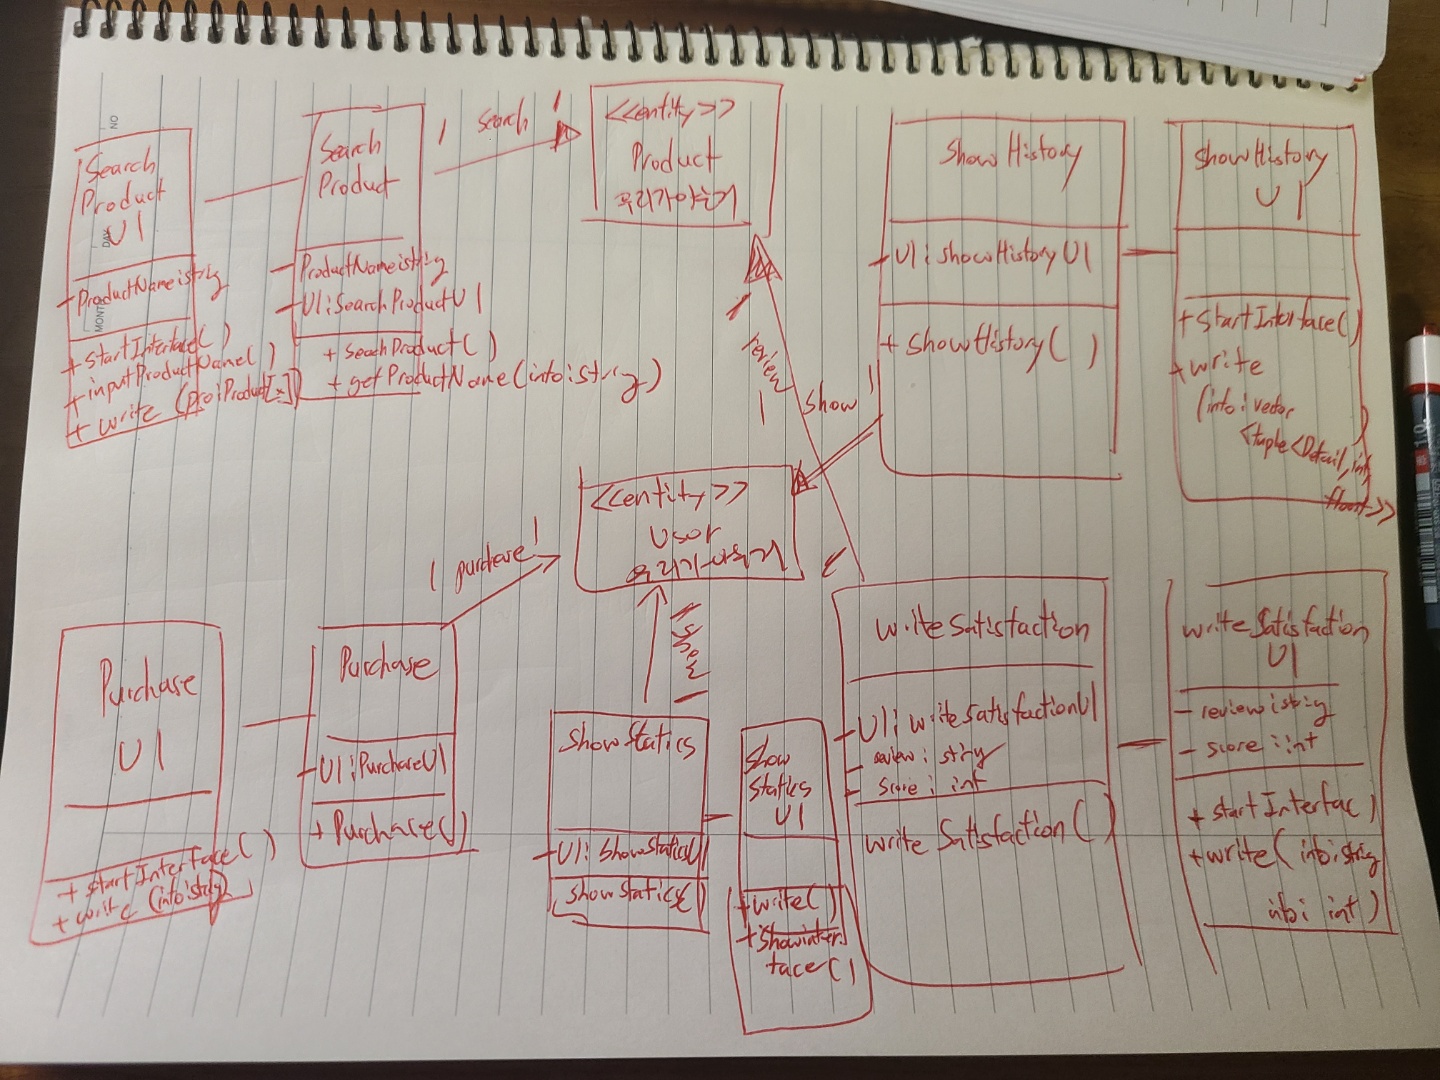 NO
DAY
MONTH
Search
Product
UI
-ProductName:string
+startInterface()
+inputProductName()
+ write (pro:Product[*])
Search
Product
- ProductName:string
-UI:SearchProductUI
+ seachProduct()
+ getProductName(info:string)
1 search 1
<<entity>>
Product
ShowHistory
-UI:showHistoryUI
+ showHistory()
showHistory
UI
+startInterface()
+write
(info:vector
<tuple<Detail,int,
float>>
1
review
1
show 1
<<entity>>
User
1 purchase 1
1
show
1
Purchase
UI
+ startInterface()
+ write (info:string)
Purchase
-UI:PurchaseUI
+Purchase()
showStatics
-UI: ShowStaticsUI
showStatics()
show
statics
UI
+write()
+showinter
facer()
writeSatisfaction
-UI:writeSatisfactionUI
- review: string
- score: int
write Satisfaction()
writeSatisfaction
UI
- review:string
- score:int
+ startInterfac)
+write(info:string
info: int)
1.0